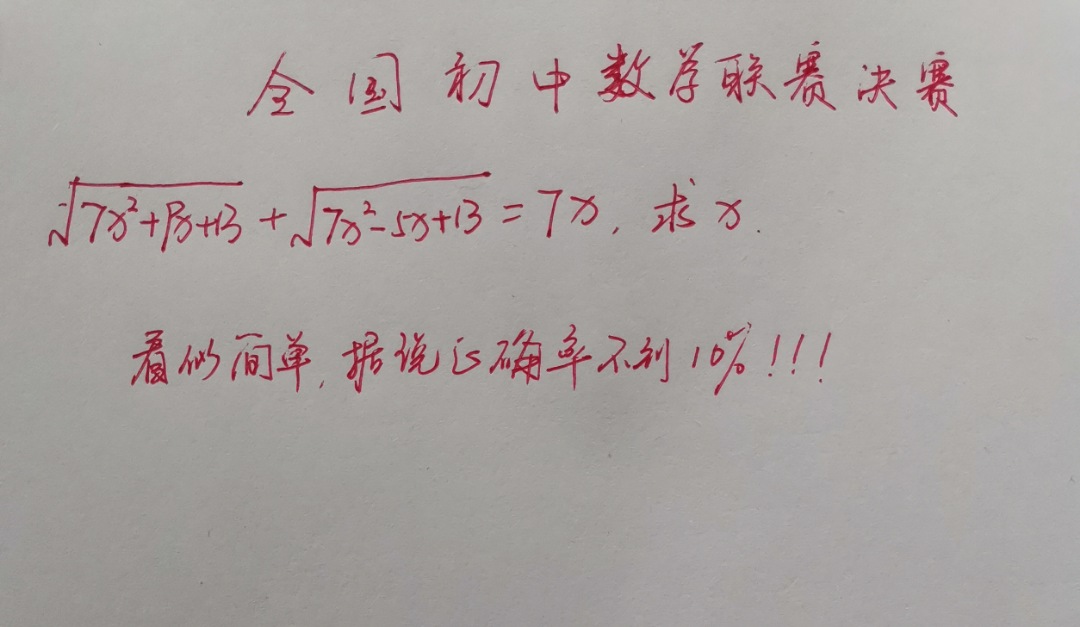 全国初中数学联赛决赛
√(7x²+9x+13) + √(7x²-5x+13) = 7x, 求x.
看似简单,据说正确率不到10%!!!